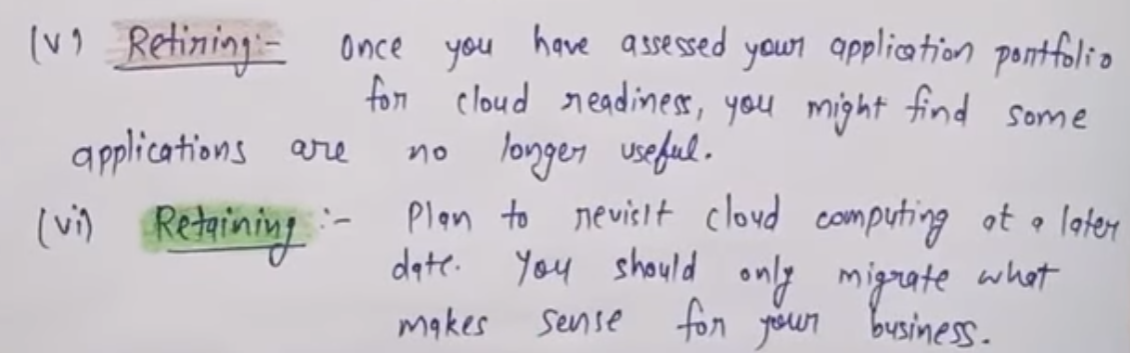 (v) Retiring:- Once you have assessed your application portfolio
for cloud readiness, you might find some
applications are no longer useful.
(vi) Retaining :- Plan to revisit cloud computing at a later
date. You should only migrate what
makes sense for your business.